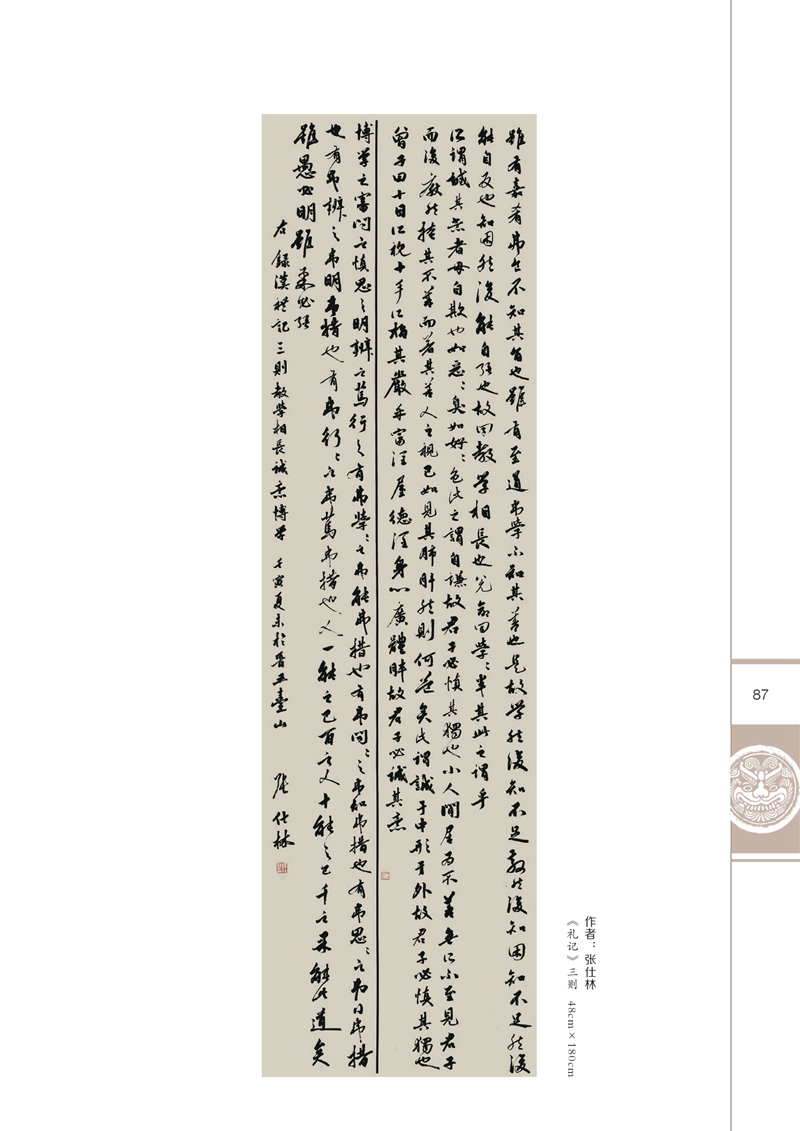 雖有嘉肴弗食不知其旨也雖有至道弗學不知其善也是故学然後知不足教然後知困知不足然後
能自反也知困然後能自强也故曰教学相長也兑命曰學〻半其此之謂乎
所謂誠其意者毋自欺也如惡〻臭如好〻色此之謂自謙故君子必慎其獨也小人閒居為不善無所不至見君子
而後厭然揜其不善而著其善人之視己如見其肺肝然則何益矣此謂誠于中形于外故君子必慎其獨也
曾子曰十目所視十手所指其嚴乎富潤屋德潤身心廣體胖故君子必誠其意
博学之審問之慎思之明辨之篤行之有弗學〻之弗能弗措也有弗問〻之弗知弗措也有弗思〻之弗得弗措
也有弗辨〻之弗明弗措也有弗行〻之弗篤弗措也人一能之己百之人十能之己千之果能此道矣
雖愚必明雖柔必强
右錄漢禮記三則教學相長誠意博學 壬寅夏末於晋五臺山 张仕林
作者：张仕林
《礼记》三则 48cm×180cm
87